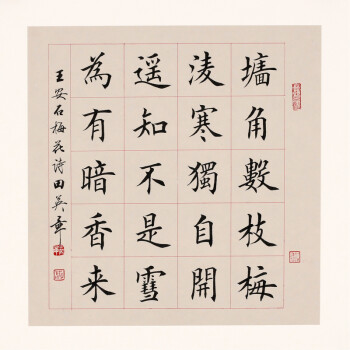 墻角數枝梅
淩寒獨自開
遥知不是雪
為有暗香来
王安石梅花诗田英章